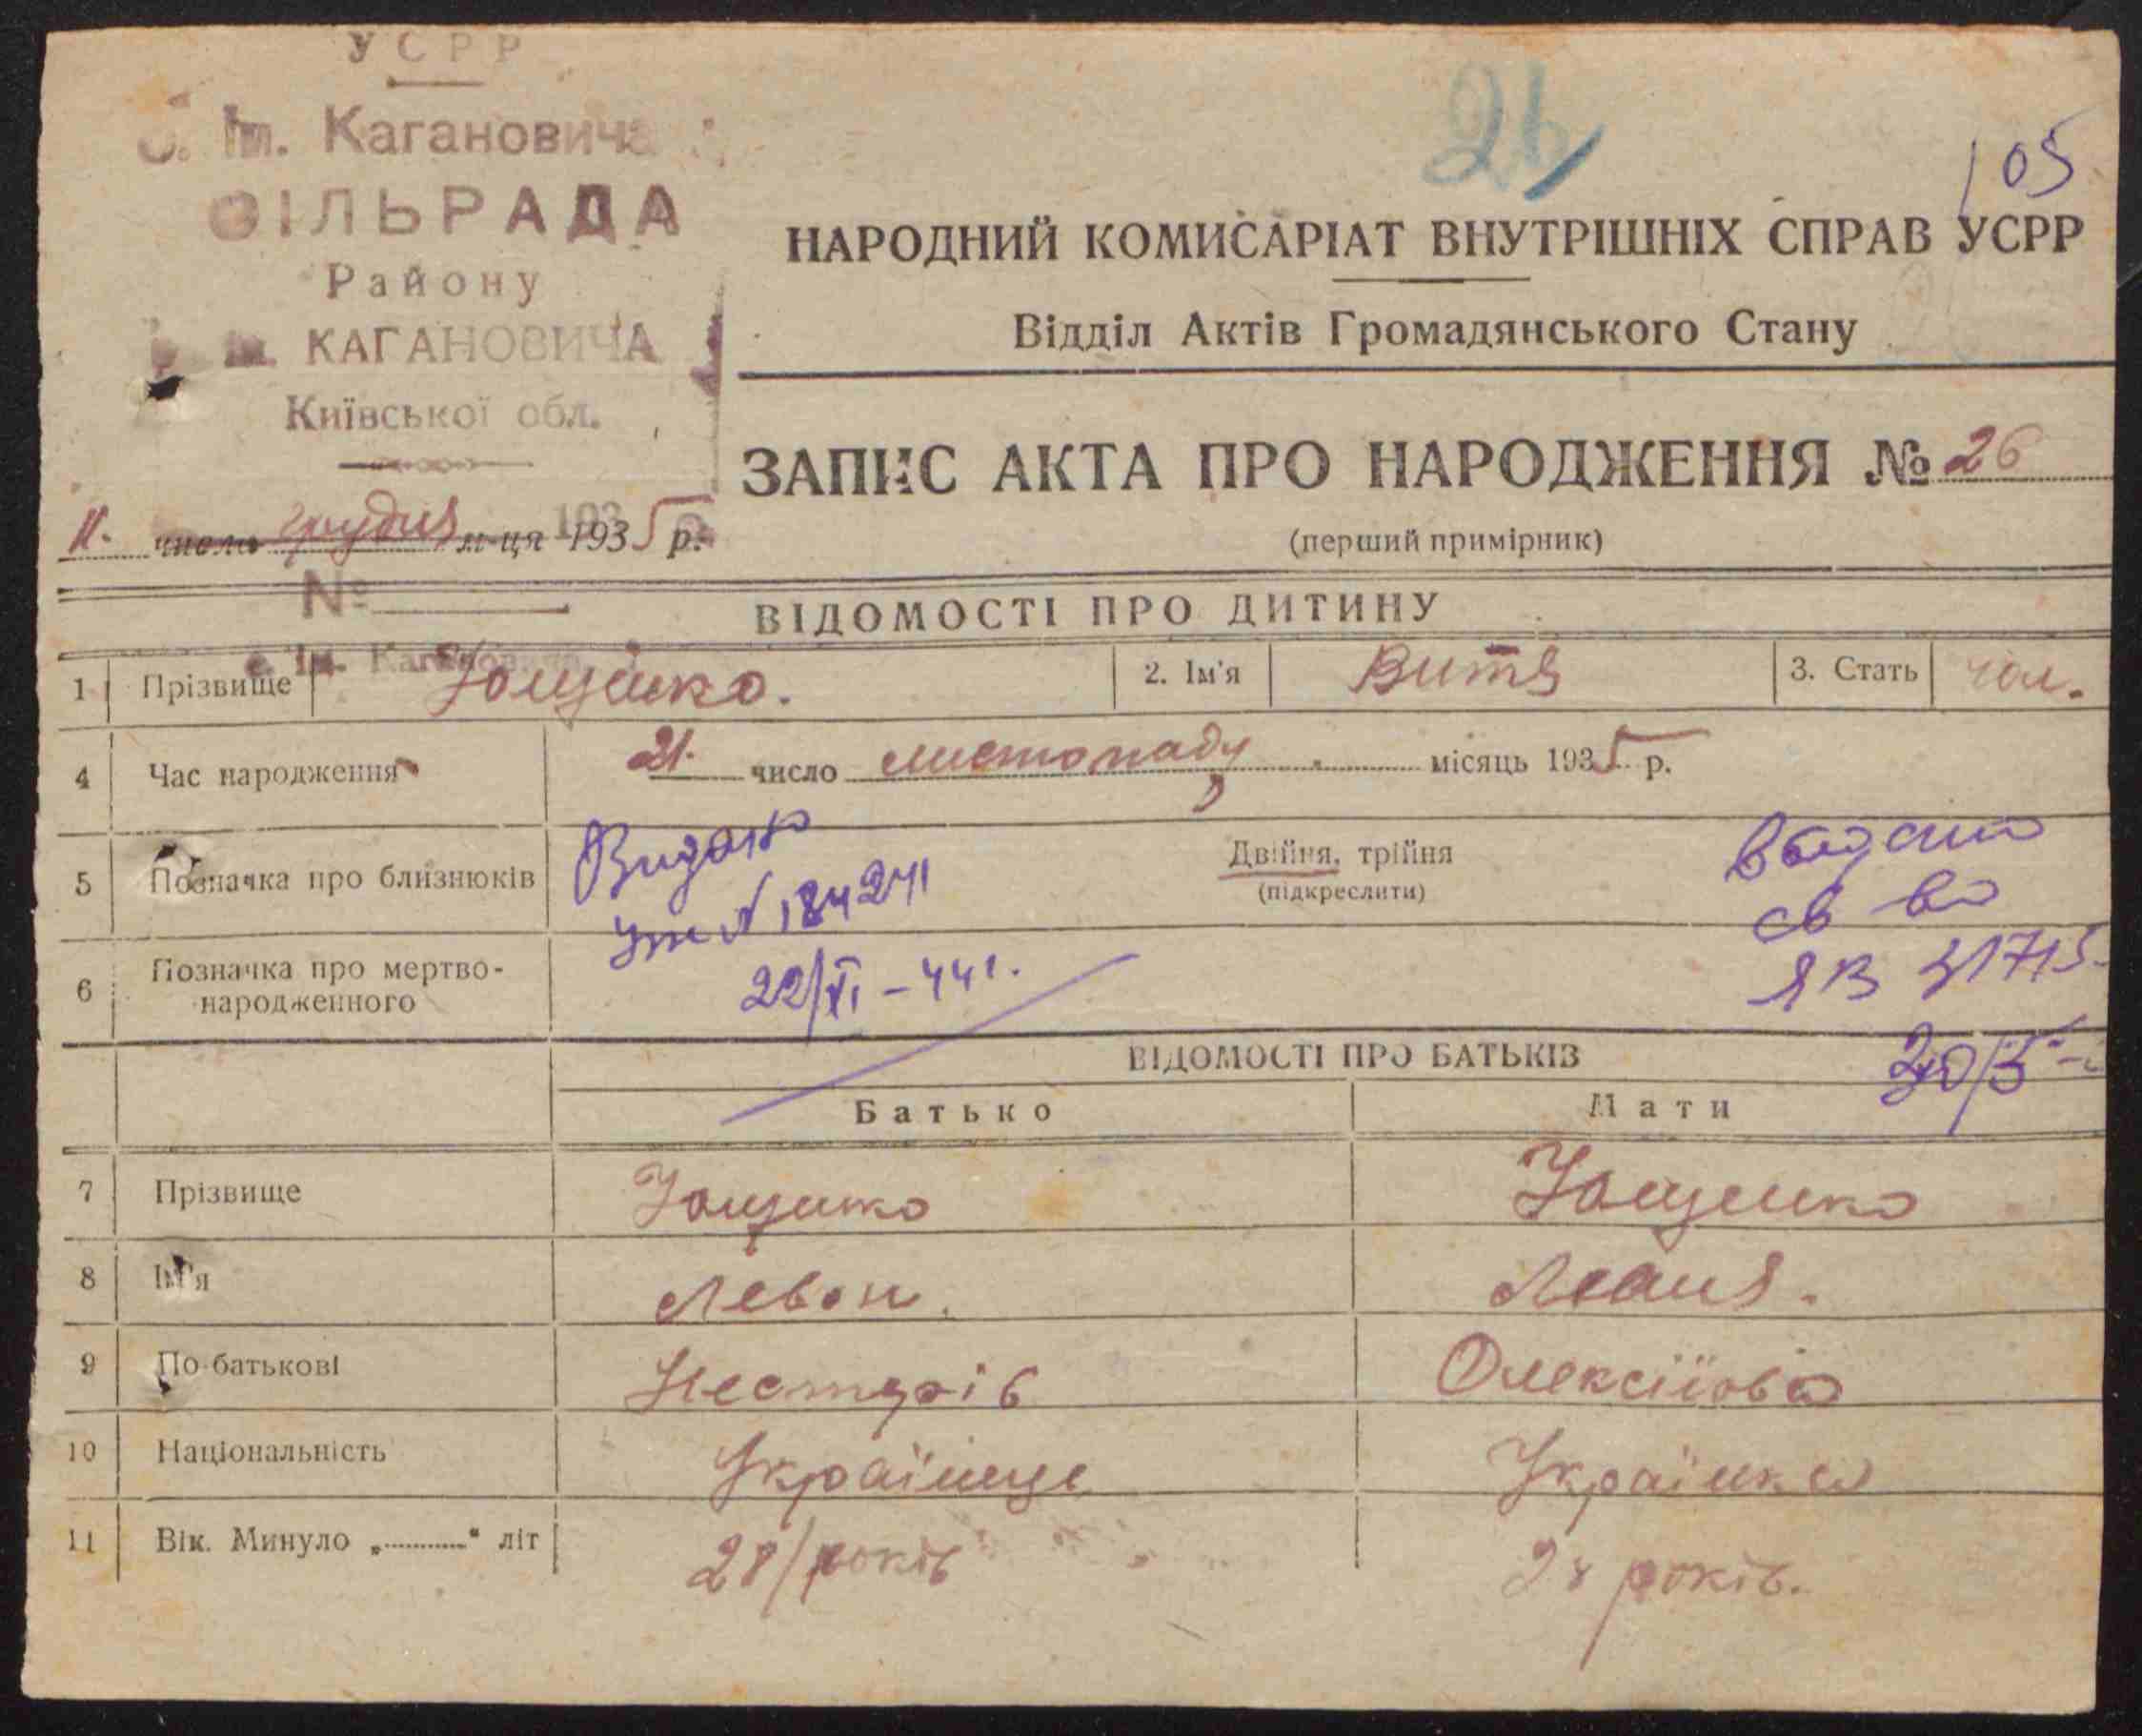 УСРР
с. Ім. Кагановича
СІЛЬРАДА
Району
Ім. КАГАНОВИЧА
Київської обл.
26
105
НАРОДНИЙ КОМИСАРІАТ ВНУТРІШНІХ СПРАВ УСРР
Відділ Актів Громадянського Стану
ЗАПИС АКТА ПРО НАРОДЖЕННЯ № 26
(перший примірник)
11. числа грудня м-ця 1935 р.
№
с. Ім. Кагановича
ВІДОМОСТІ ПРО ДИТИНУ
1 Прізвище Ющенко. 2. Ім'я Витя 3. Стать чол.
4 Час народження 21. число листопаду місяць 1935 р.
5 Позначка про близнюків Двійня, трійня
(підкреслити)
Видано
№ 184241
22/XI - 44 г.
Выдано
св во
ЯВ
6 Позначка про мертво-
народженного
ВІДОМОСТІ ПРО БАТЬКІВ
Батько Мати
7 Прізвище Ющенко Ющенко
8 Ім'я Левон.
9 По-батькові Нестерів Олексіїова
10 Національність Українець Українка
11 Вік. Минуло „..........“ літ 28 років 28 років.